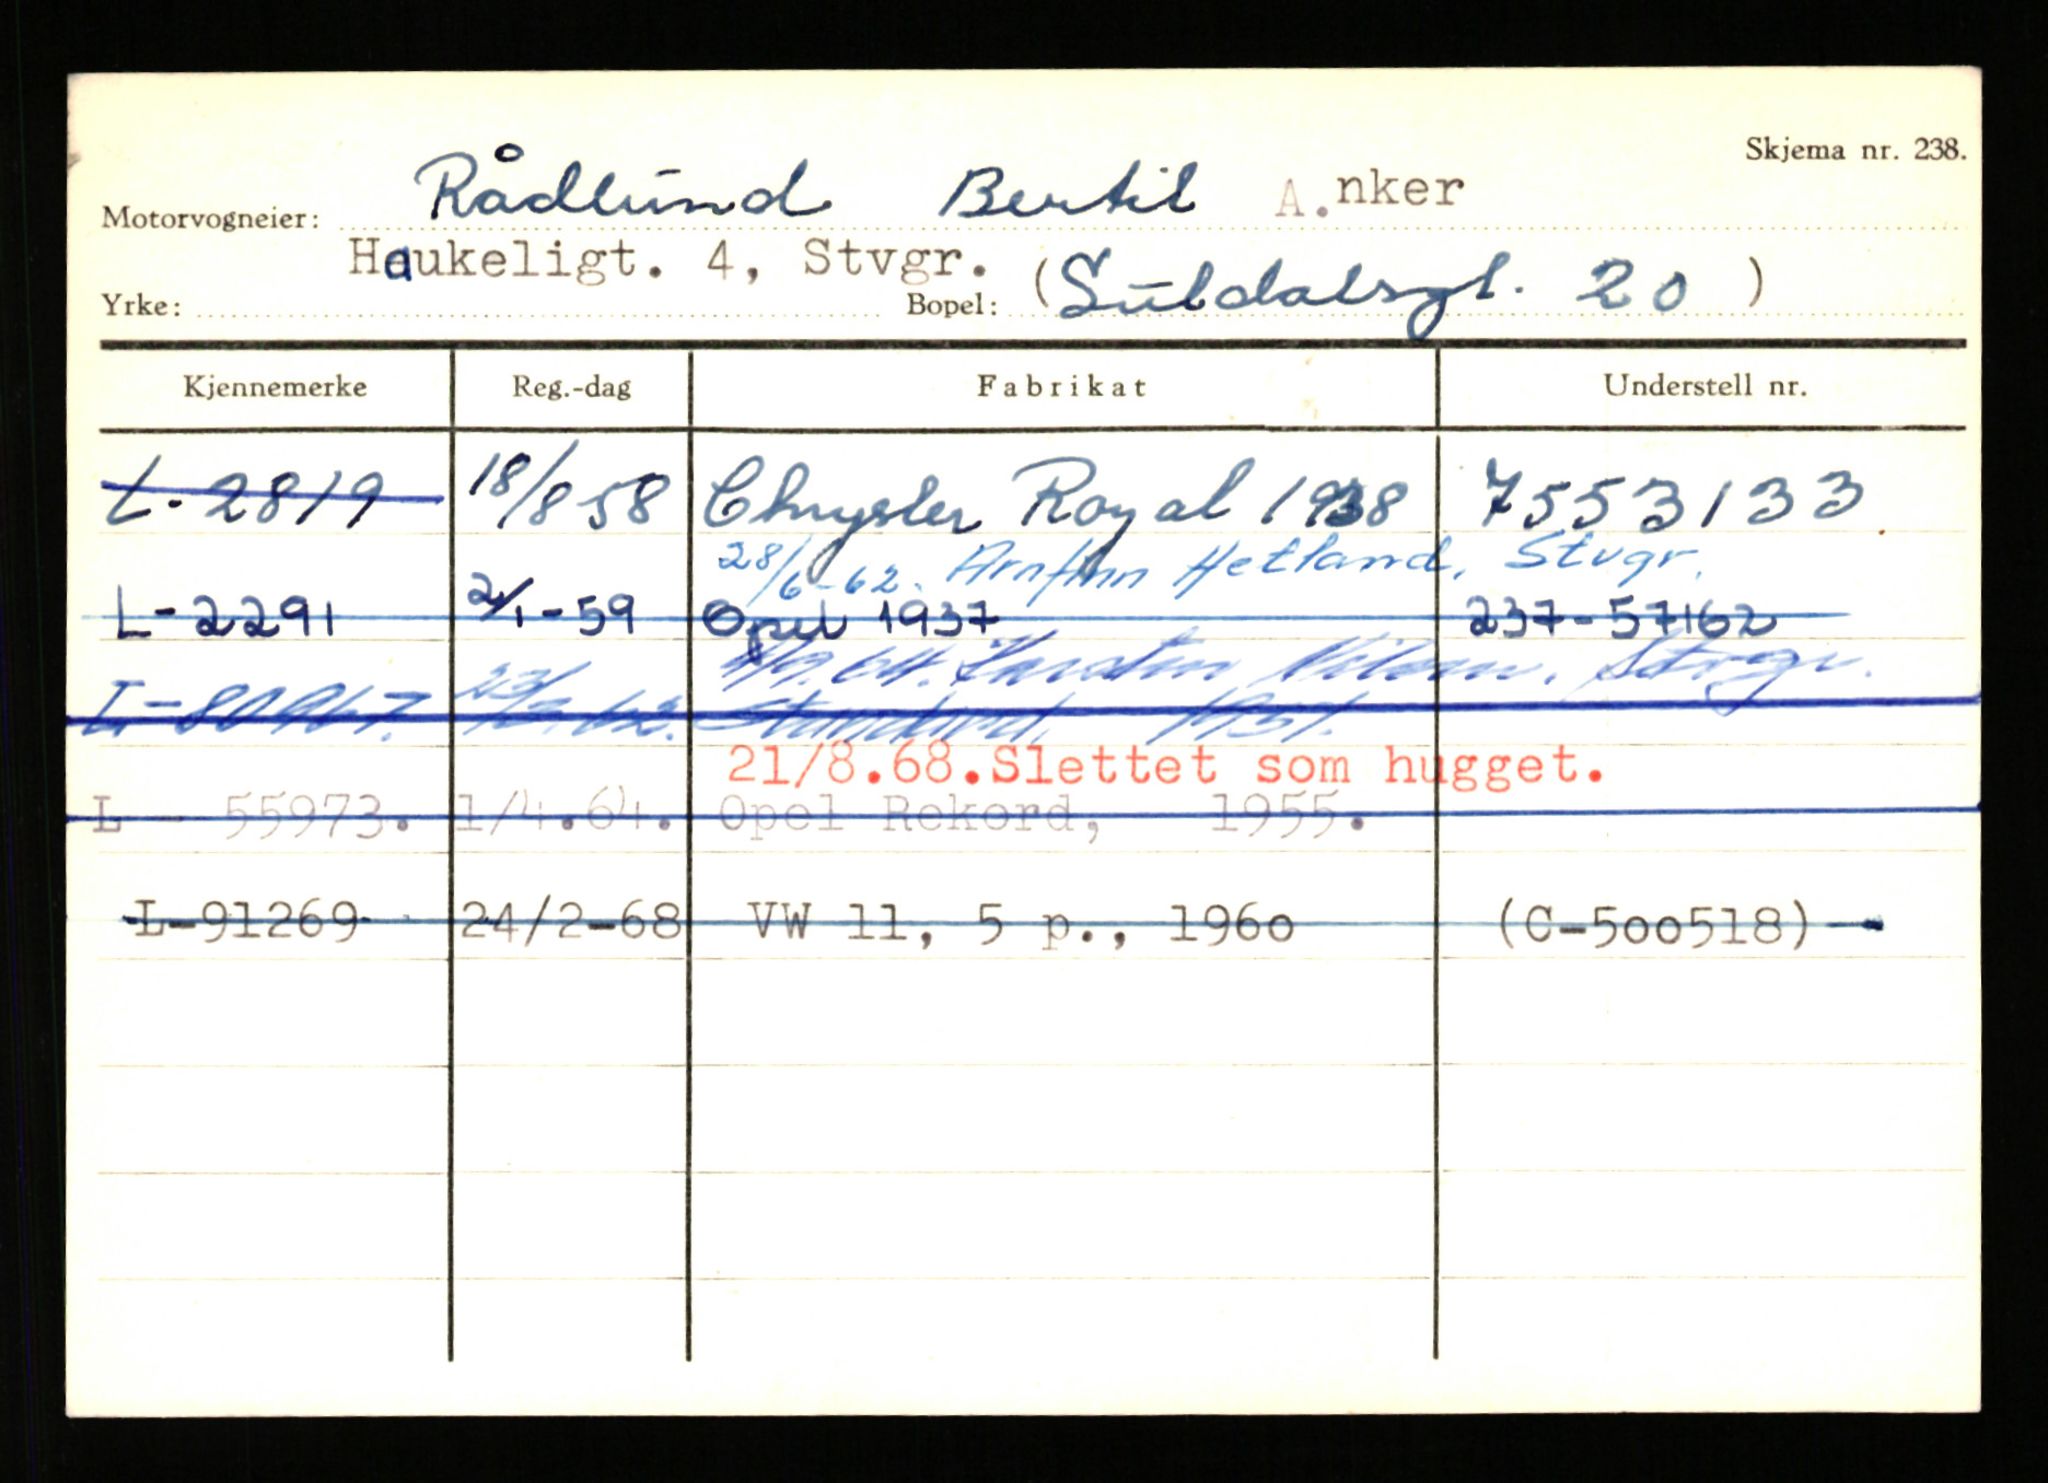 Skjema nr. 238.
Motorvogneier: Rådlund Bertil A.nker
Haukeligt. 4, Stvgr.
Yrke: Bopel: (Suldalsgt. 20)
Kjennemerke Reg.-dag Fabrikat Understell nr.
L-2819 18/8 58 Chrysler Royal 1938 7553133
28/6-62. Arnfinn Hetland, Stvgr.
L-2291 2/1-59 Opel 1937 237-57162
Stvgr.
Standard, 1951.
21/8.68.Slettet som hugget.
L - 55973. 1/4.64. Opel Rekord, 1955.
L-91269 24/2-68 VW 11, 5 p., 1960 (C-500518)